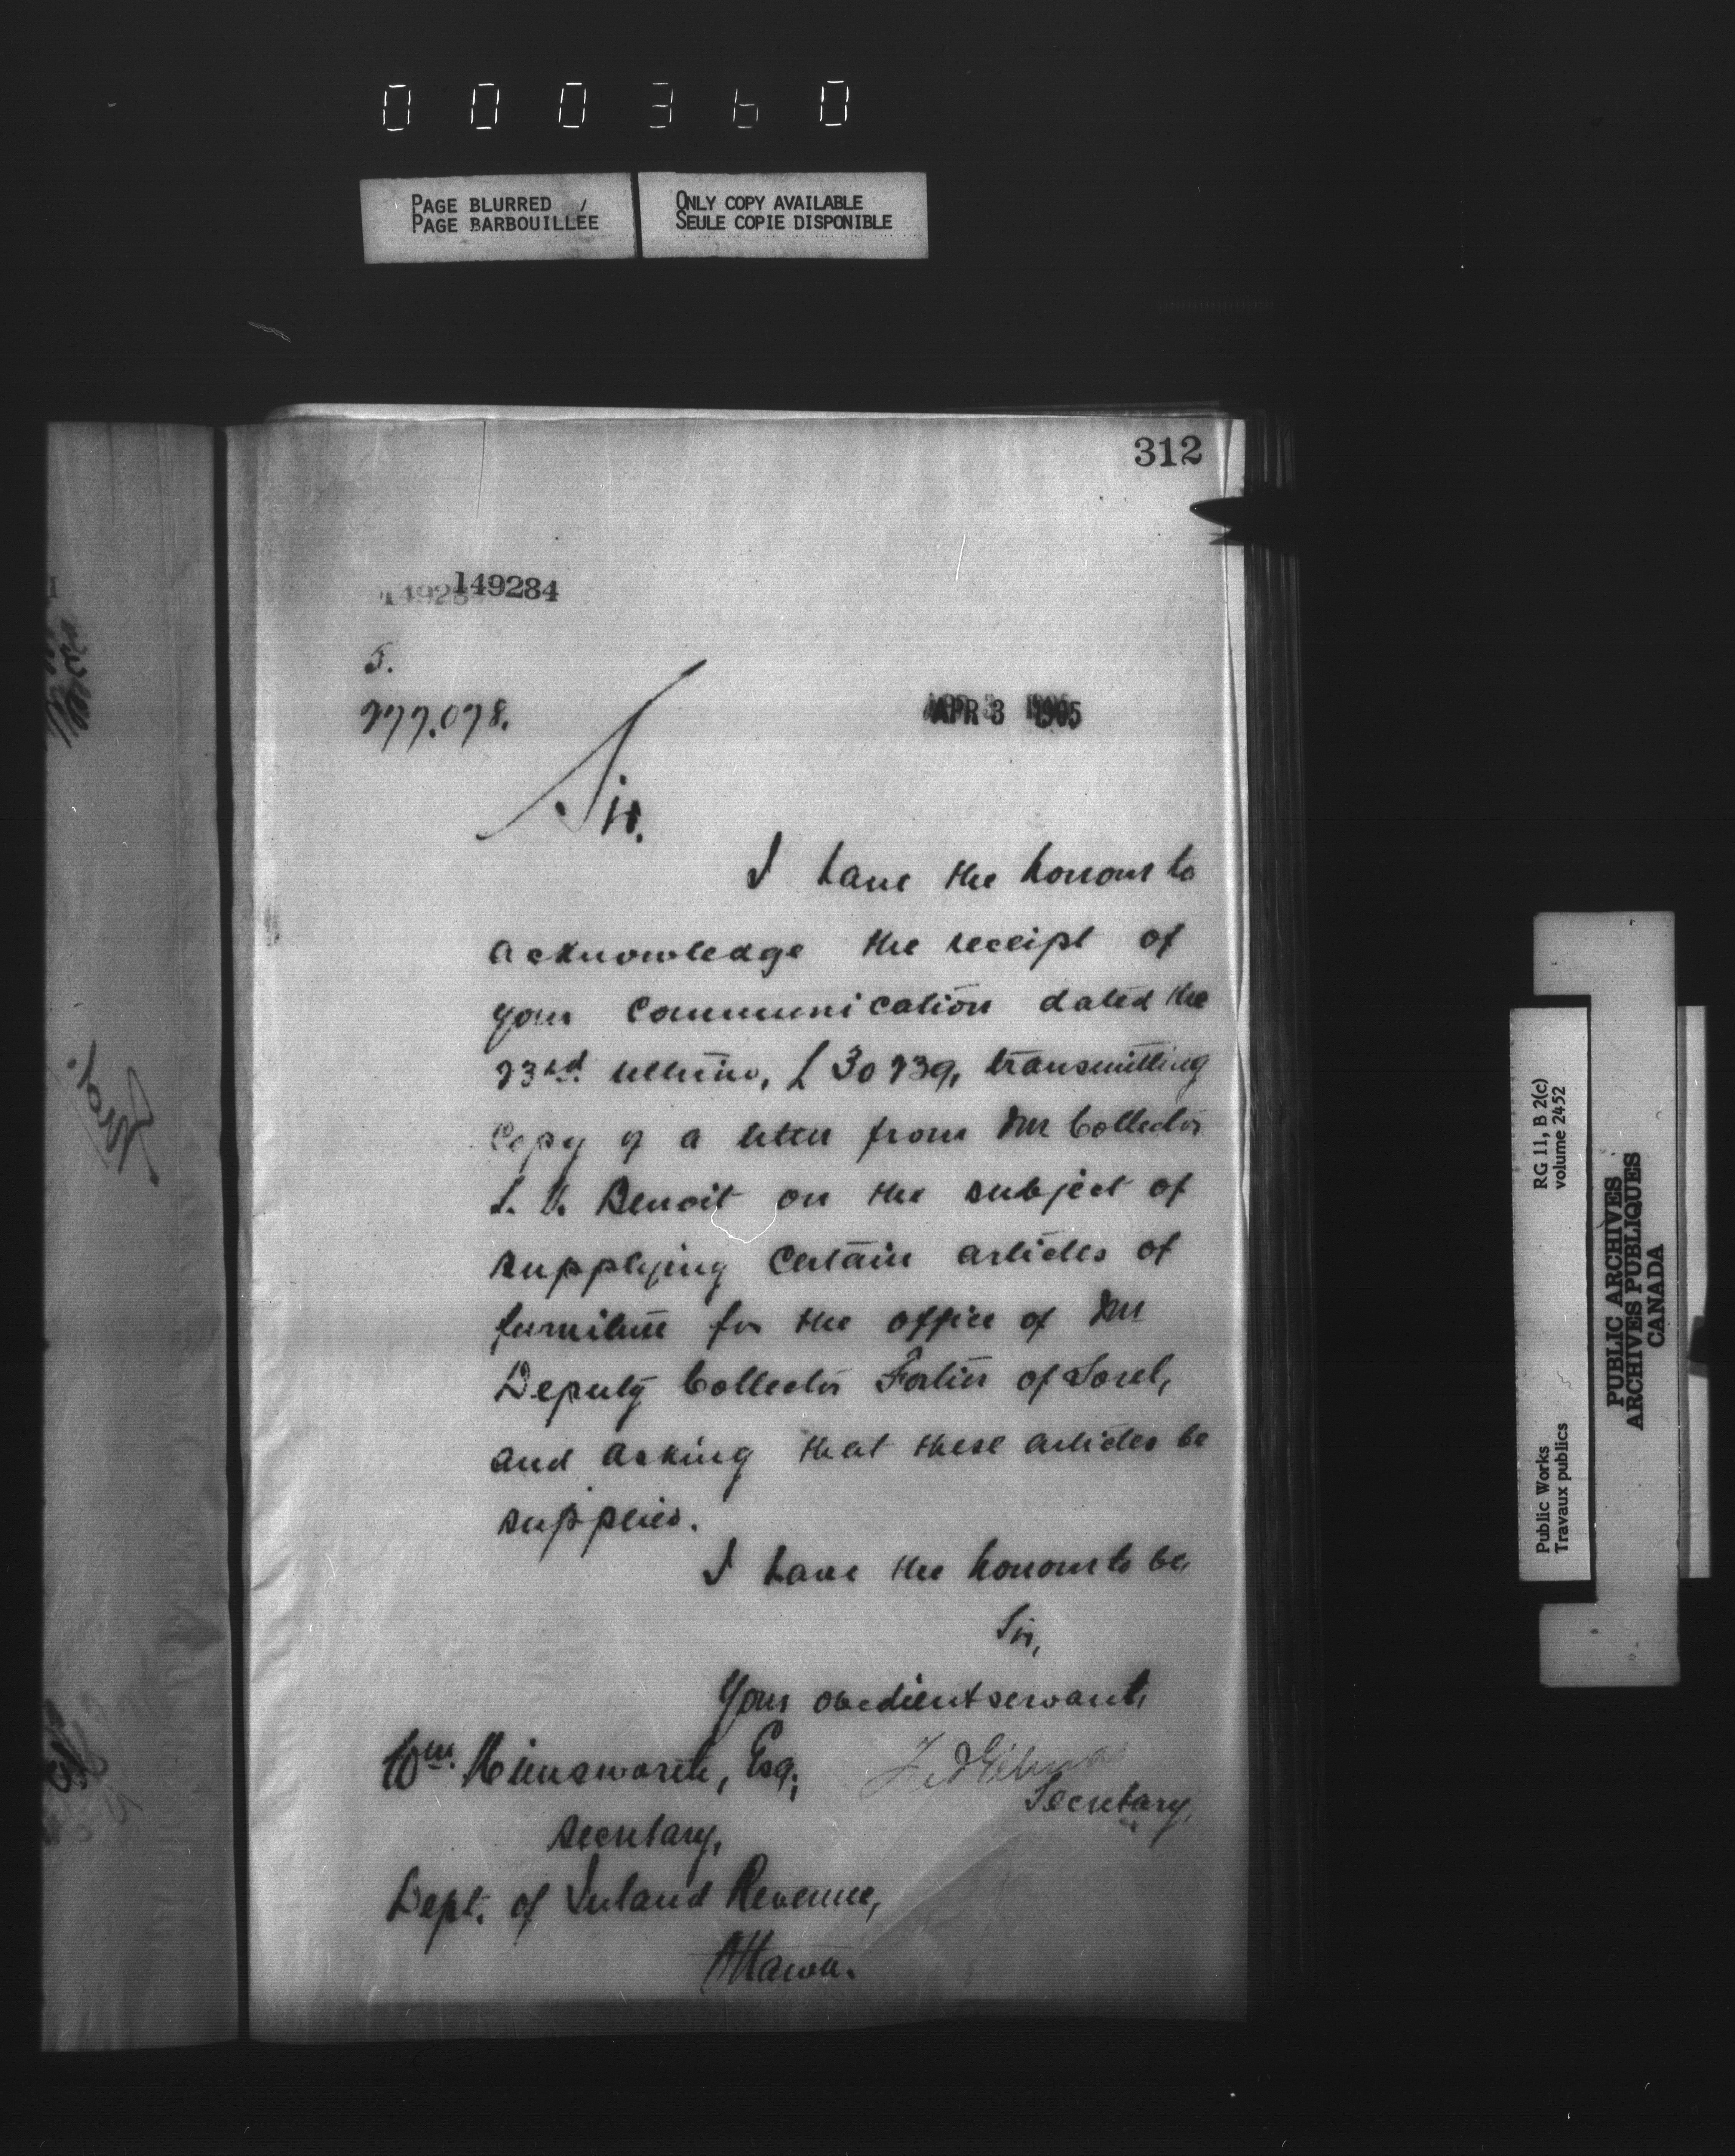 000360
PAGE BLURRED /
PAGE BARBOUILLEE
ONLY COPY AVAILABLE
SEULE COPIE DISPONIBLE
312
149284
5.
277.078.
APR 3 1905
Sir.
I have the honour to
acknowledge the receipt of
your communication dated the
23rd. ultimo, L 30239, transmitting
Copy of a letter from Mr Collector
L. V. Benoit on the subject of
supplying certain articles of
furniture for the office of Mr
Deputy Collector Fortier of Sorel,
and asking that these articles be
supplied.
I have the honour to be,
Sir,
Your obedient servant,
Secretary,
Wm. Himsworth, Esq;
Secretary,
Dept. of Inland Revenue,
Ottawa.
RG 11, B 2(c)
volume 2452
Public Works
Travaux publics
PUBLIC ARCHIVES
ARCHIVES PUBLIQUES
CANADA